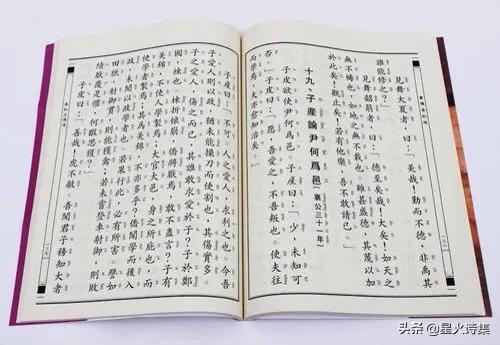 見舞大夏者,曰:「美哉!勤而不德,非禹其
誰能修之?」
見舞韶箾者,曰:「德至矣哉!大矣!如天之
無不幬也,如地之無不載也。雖甚盛德,其蔑以加
於此矣!觀止矣!若有他樂,吾不敢請已。」
十九、子產論尹何爲邑(襄公三十一年)
子皮欲使尹何爲邑。子產曰:「少,未知可
否。」子皮曰:「愿,吾愛之,不吾叛也。使夫往
而學焉,夫亦愈知治矣。」
子產曰:「不可。人之愛人,求利之也。今吾
子愛人則以政,猶未能操刀而使割也,其傷實多。
子之愛人,傷之而已,其誰敢求愛於子?子於鄭
國,棟也。棟折榱崩,僑將厭焉,敢不盡言?子有
美錦,不使人學製焉;大官大邑,身之所庇也,而
使學者製焉;其爲美錦,不亦多乎?僑聞學而後入
政,未聞以政學者也。若果行此,必有所害。譬如
田獵,射御貫,則能獲禽;若未嘗登車射御,則敗
績厭覆是懼,何暇思獲?」
子皮曰:「善哉!虎不敏。吾聞君子務知大者
头条 @星火诗集